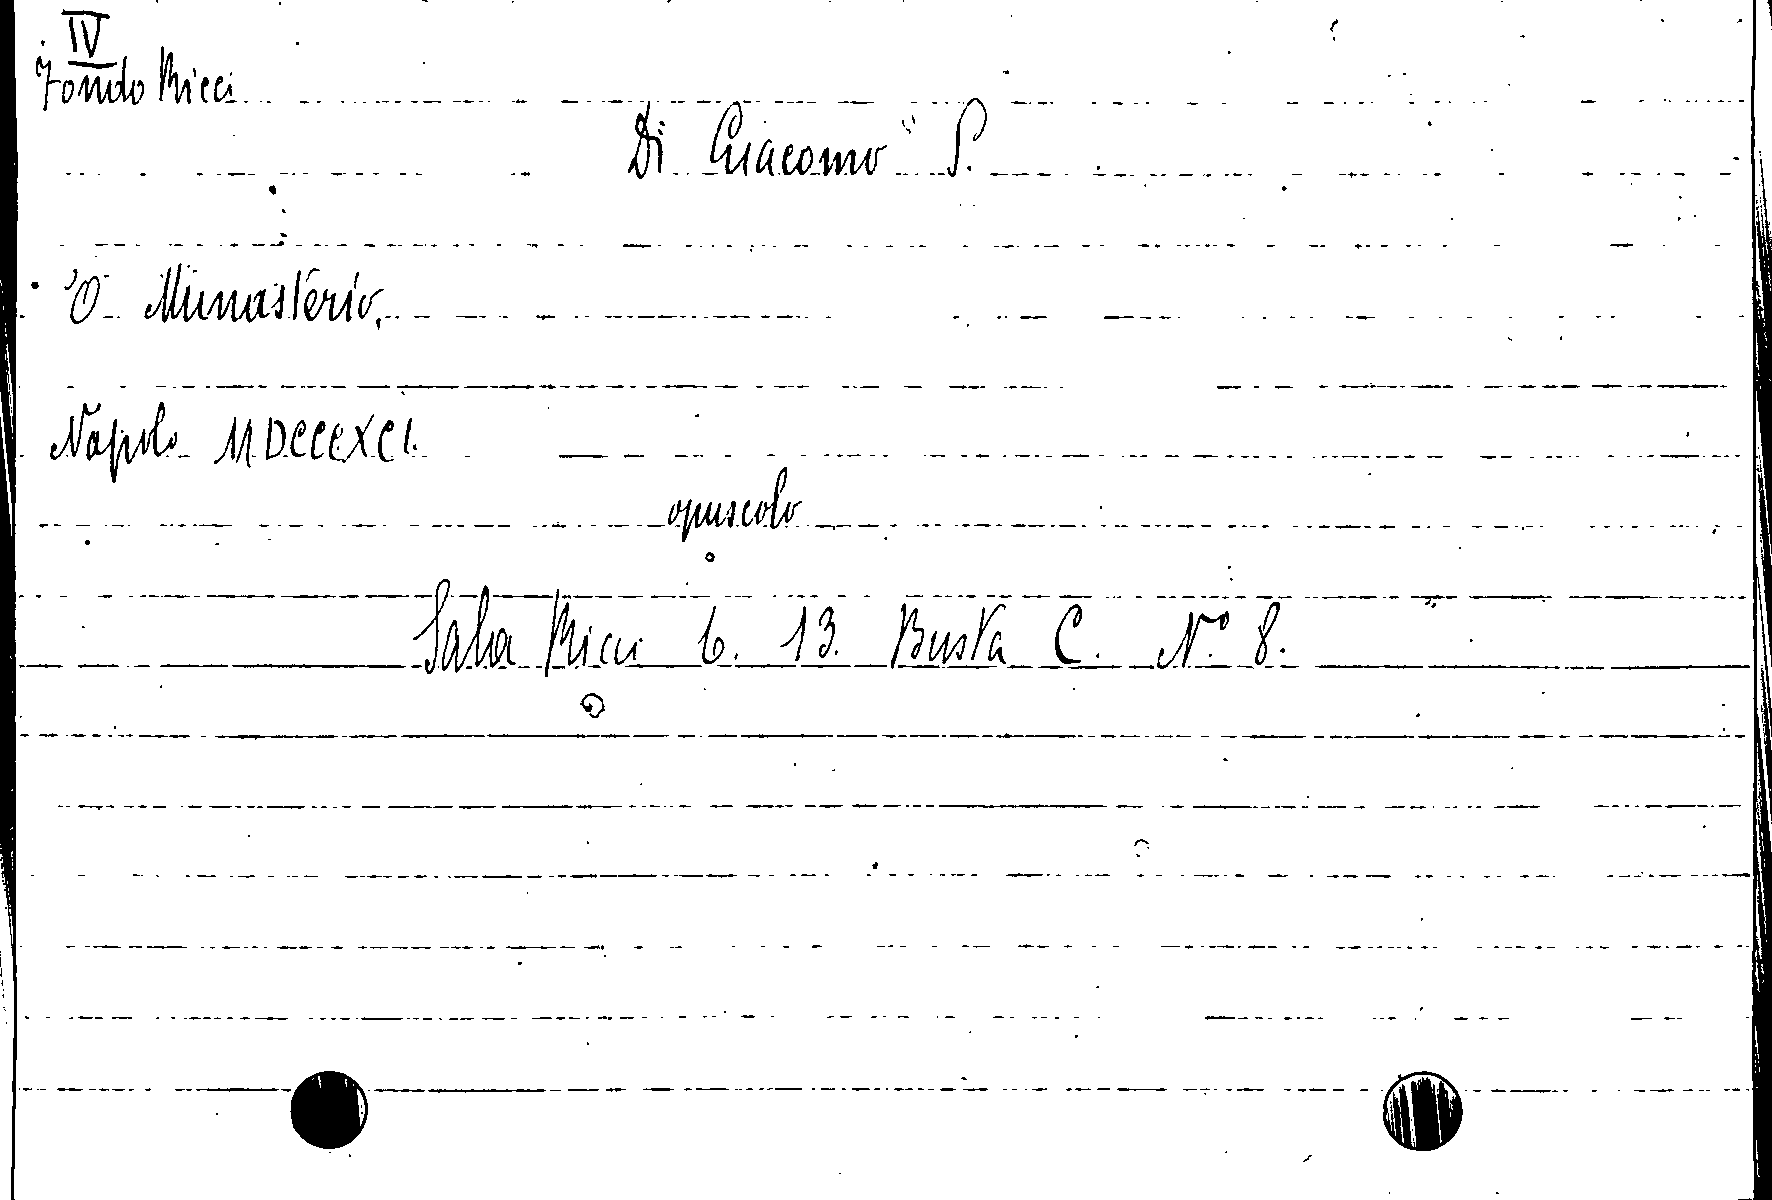 IV
Fondo Ricci
Di Giacomo S.
'O Munasterio,
Napoli MDCCCXCI.
opuscolo
Sala Ricci 6. 13. Busta C. N.º 8.